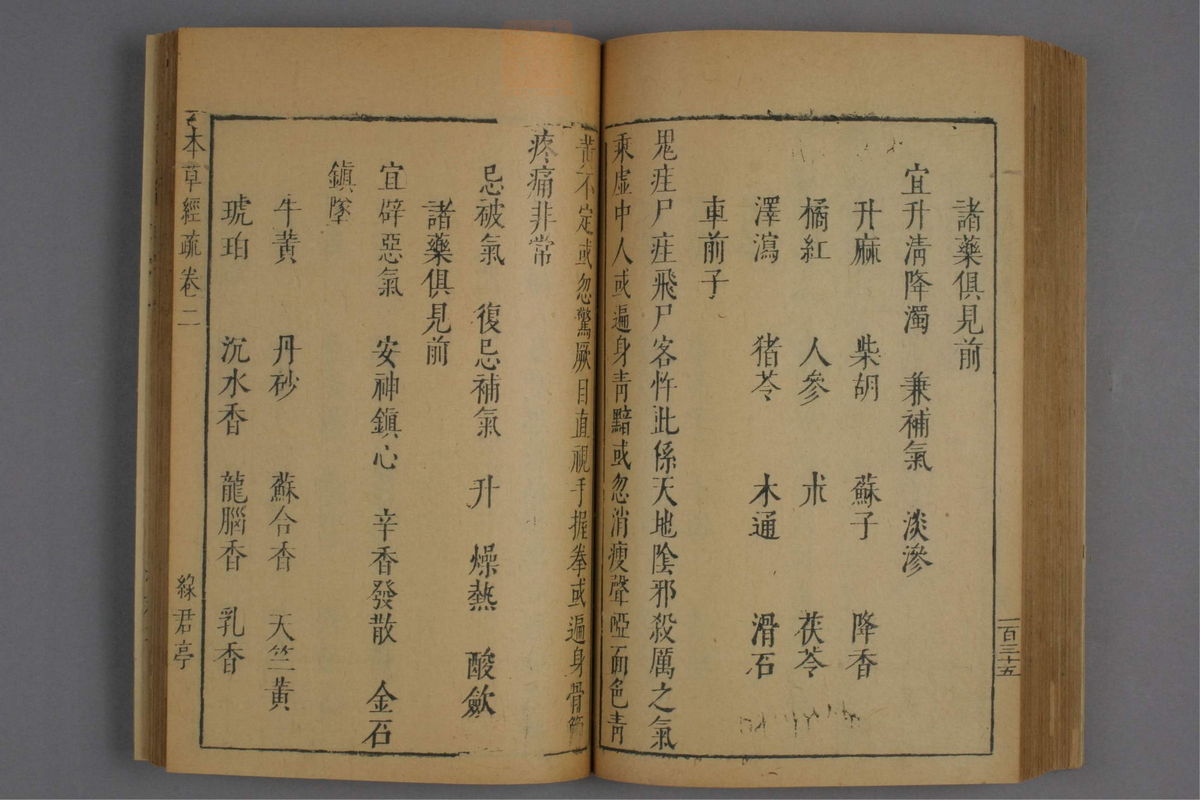 諸藥俱見前
宜升淸降濁　兼補氣　淡滲
升麻　柴胡　蘇子　降香
橘紅　人參　朮　茯苓
澤瀉　猪苓　木通　滑石
車前子
鬼疰尸疰飛尸客忤此係天地陰邪殺厲之氣
乘虛中人或遍身靑黯或忽消瘦聲啞面色靑
黃不定或忽驚厥目直視手握拳或遍身骨節
疼痛非常
忌破氣　復忌補氣　升　燥熱　酸斂
諸藥俱見前
宜辟惡氣　安神鎭心　辛香發散　金石
鎭墜
牛黃　丹砂　蘇合香　天竺黃
琥珀　沉水香　龍腦香　乳香
本草經疏卷二
綠君亭
一百三十五